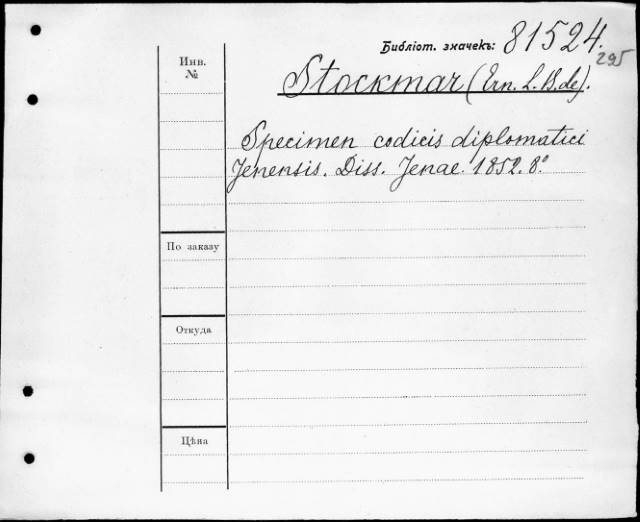 Библіот. значекъ: 81524.
295
Инв.
№
Stockmar (Ern. L. B. de).
Specimen codicis diplomatici
Jenensis. Diss. Jenae. 1852. 8º
По заказу
Откуда
Цѣна